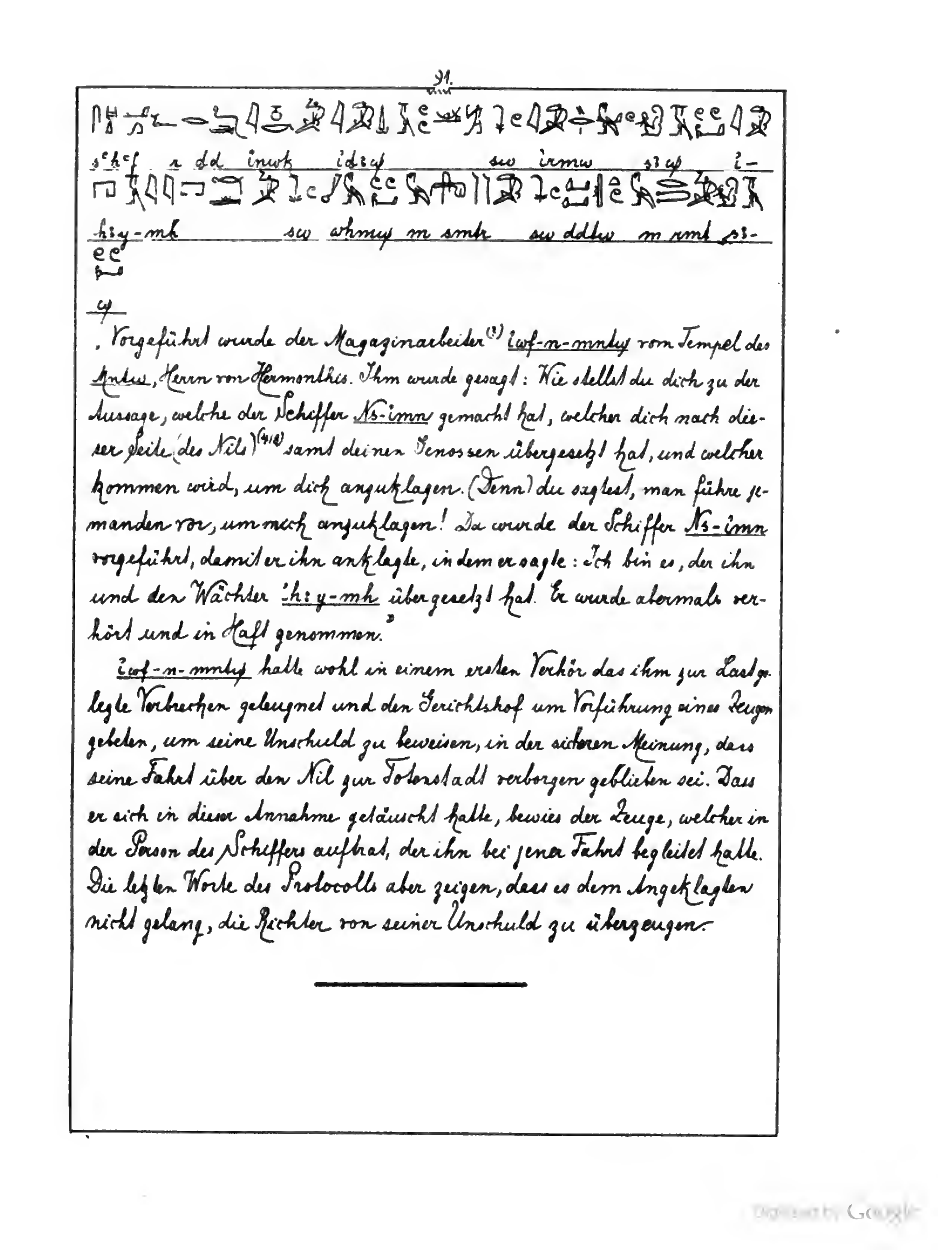 91.
sʿhʿf r dd inwk idꜣy sw irmw sꜣw i-
hꜣy-mh sw whmy m smtr sw ddtw m rmt sꜣ-
w
„Vorgeführt wurde der Magazinarbeiter(?) iwf-n-mntw vom Tempel des
Mntw, Herrn von Hermonthis. Ihm wurde gesagt: Wie stellst du dich zu der
Aussage, welche der Schiffer Ns-imn gemacht hat, welcher dich nach die-
ser Seite (des Nils) samt deinen Genossen übergesetzt hat, und welcher
kommen wird, um dich anzuklagen. (Denn) du sagtest, man führe je-
manden vor, um mich anzuklagen! Da wurde der Schiffer Ns-imn
vorgeführt, damit er ihn anklagte, indem er sagte: Ich bin es, der ihn
und den Wächter ihꜣy-mh übergesetzt hat. Er wurde abermals ver-
hört und in Haft genommen.”
iwf-n-mntw hatte wohl in einem ersten Verhör das ihm zur Last ge-
legte Verbrechen geleugnet und den Gerichtshof um Vorführung eines Zeugen
gebeten, um seine Unschuld zu beweisen, in der sicheren Meinung, dass
seine Fahrt über den Nil zur Totenstadt verborgen geblieben sei. Dass
er sich in dieser Annahme getäuscht hatte, bewies der Zeuge, welcher in
der Person des Schiffers auftrat, der ihn bei jener Fahrt begleitet hatte.
Die letzten Worte des Protocolls aber zeigen, dass es dem Angeklagten
nicht gelang, die Richter von seiner Unschuld zu überzeugen.
Digitized by Google